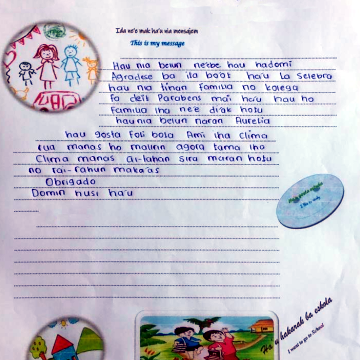 Ida ne'e mak ha'u nia mensajem
This is my message
Hau nia belun nebbe hau hadomi
Agradese ba ita boot ha'u La selebra
hau nia tinan familia no kolega
fo deit Parabens mai ha'u hau ho
familia iha ne'e diak hotu
hau nia belun naran Aurelia
hau gosta foli bola Ami iha Clima
rua manas ho malirin agora tama iha
Clima manas ai-tahan sira maran hotu
no rai-rahun makaas
Obrigado
Domin husi ha'u
u hakarak ba eskola
I want to go to School